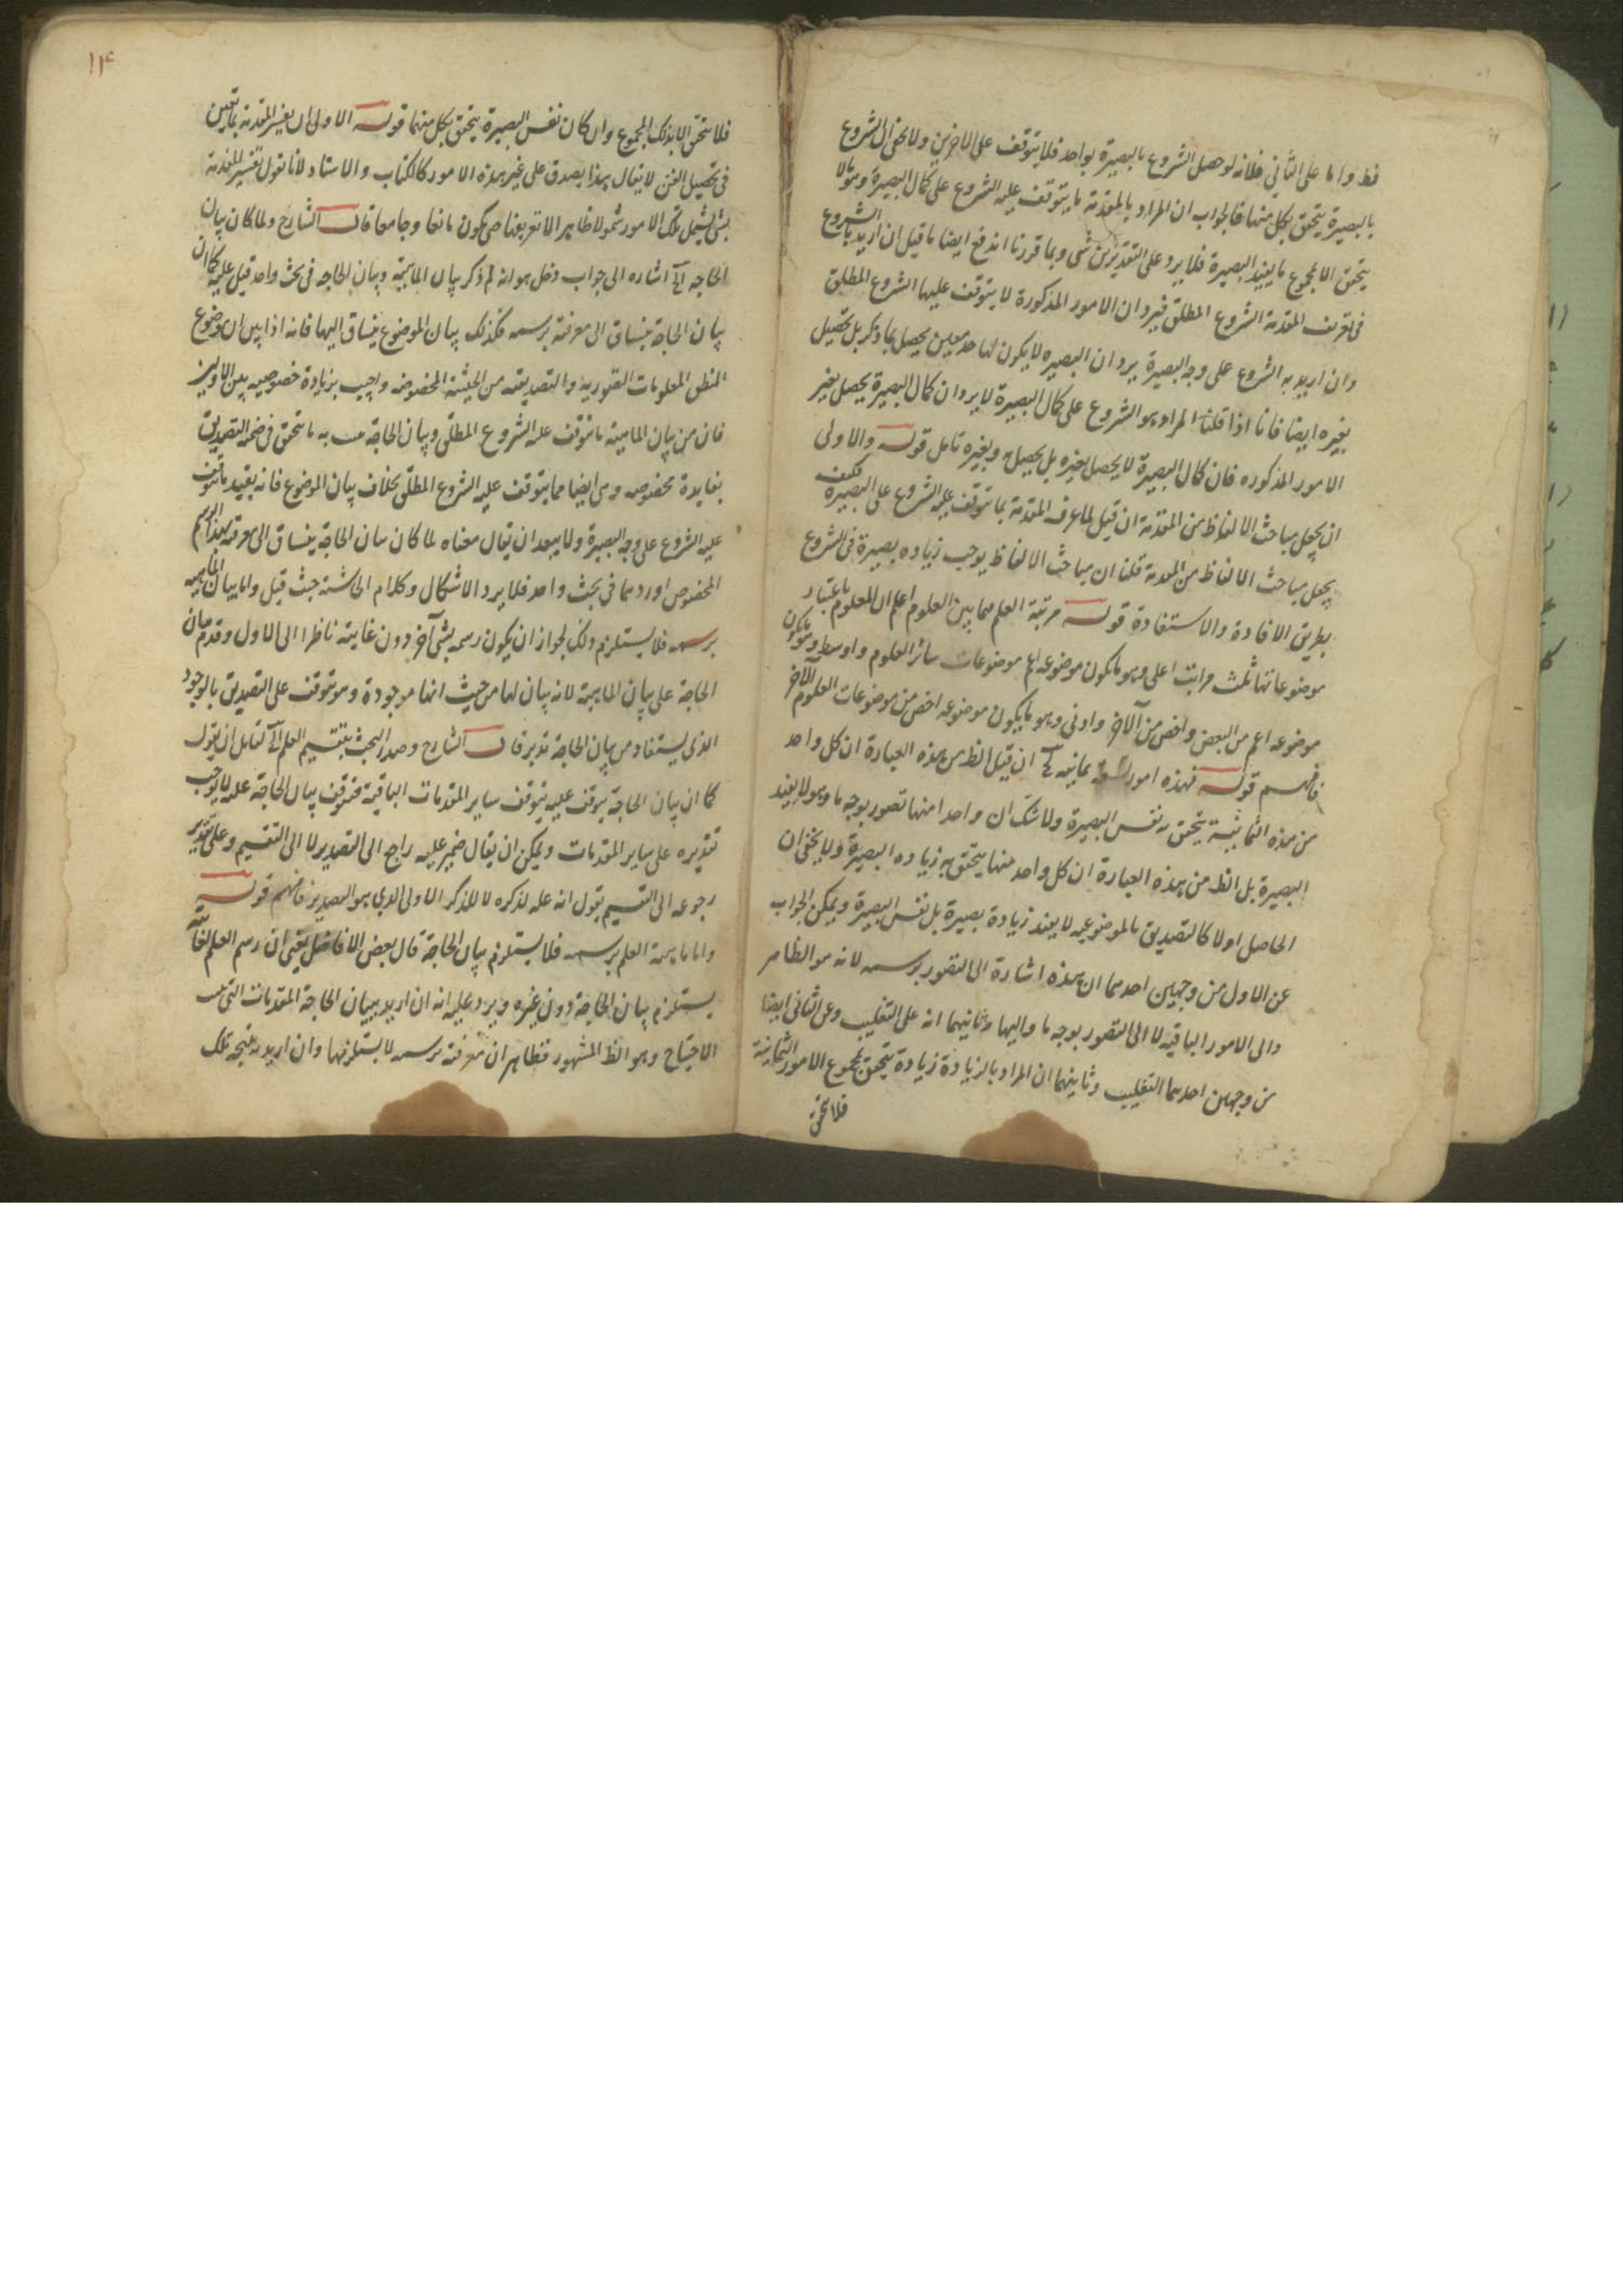 فظ واما على الثاني فلانه لو حصل الشروع بالبصيرة بواحد فلا يتوقف على الاخرين ولا يخفى ان الشروع
بالبصيرة يتحقق بكل منها فالجواب ان المراد بالمقدمة ما يتوقف عليه الشروع على كمال البصيرة وهو لا
يتحقق الا بمجموع ما يفيد البصيرة فلا يرد على التقديرين شى وبما قررنا اندفع ايضا ما قيل ان اريد بالشروع
فى تعريف المقدمة الشروع المطلق فيرد ان الامور المذكورة لا يتوقف عليها الشروع المطلق
وان اريد به الشروع على وجه البصيرة يرد ان البصيره لا يكون لها حد معين يحصل بما ذكر بل يحصل
بغيره ايضا فانا اذا قلنا المراد هو الشروع على كمال البصيرة لا يرد ان كمال البصيرة يحصل بغير
الامور المذكوره فان كمال البصيرة لا يحصل بغيره بل يحصل به وبغيره تامل قوله والاولى
ان يجعل مباحث الالفاظ من المقدمة ان قيل لما عرف المقدمة بما يتوقف عليه الشروع على البصيرة فكيف
يجعل مباحث الالفاظ من المقدمة قلنا ان مباحث الالفاظ يوجب زياده بصيرة فى الشروع
بطريق الافادة والاستفادة قوله مرتبة العلم فيما بين العلوم اعلم ان للعلوم باعتبار
موضوعاتها ثلث مراتب اعلى وهو ما يكون موضوعه اعم موضوعات سائر العلوم واوسط وهو ما يكون
موضوعه اعم من البعض واخص من الآخر وادنى وهو ما يكون موضوعه اخص من موضوعات العلوم الآخر
فافهم قوله فهذه امور ثمانية الخ ان قيل الظ من هذه العبارة ان كل واحد
من هذه الثمانية يتحقق به نفس البصيرة ولا شك ان واحدا منها تصور بوجه ما وهو لا يفيد
البصيرة بل الظ من هذه العبارة ان كل واحد منها يتحقق به زياده البصيرة ولا يخفى ان
الحاصل اولا كالتصديق بالموضوعيه لا يفيد زيادة بصيرة بل نفس البصيرة ويمكن الجواب
عن الاول من وجهين احدهما ان هذه اشارة الى التصور برسمه لانه هو الظاهر
والى الامور الباقيه لا الى التصور بوجه ما واليها وثانيهما انه على التغليب وعن الثاني ايضا
من وجهين احدهما التغليب وثانيهما ان المراد بالزيادة زيادة يتحقق بمجموع الامور الثمانية
فلا يتحقق
١١٤
فلا يتحقق الا بذلك المجموع وان كان نفس البصيرة يتحقق بكل منهما قوله الاولى ان يفسر المقدمة بما يعين
فى تحصيل الفن لا يقال هذا يصدق على غير هذه الامور كالكتاب والاستاد لانا نقول تفسير المقدمة
بشى يشمل تلك الامور شمولا ظاهرا لا تعريفها حتى يكون مانعا وجامعا قال الشارح ولما كان بيان
الحاجه الخ اشاره الى جواب دخل هو انه لم ذكر بيان الماهية وبيان الحاجه فى بحث واحد قيل عليه كما ان
بيان الحاجة ينساق الى معرفته برسمه فكذلك بيان الموضوع ينساق اليها فانه اذا بين ان موضوع
المنطق المعلومات التصوريه والتصديقيه من الحيثية المخصوصه واجيب بزيادة خصوصيه بين الاولين
فان من بيان الماهية ما توقف عليه الشروع المطلق وبيان الحاجة به ما يتحقق فى ضمنه التصديق
بفايدة مخصوصه وهى ايضا مما يتوقف عليه الشروع المطلق بخلاف بيان الموضوع فانه يفيد ما يتوقف
عليه الشروع على وجه البصيرة ولا يبعد ان يقال معناه لما كان بيان الحاجة ينساق الى معرفته بهذا الرسم
المخصوص اوردهما فى بحث واحد فلا يرد الاشكال وكلام الحاشية حيث قيل واما بيان الماهيه
برسمه فلا يستلزم ذلك لجواز ان يكون رسمه بشى آخر دون غايته ناظرا الى الاول وقدم بيان
الحاجة على بيان الماهية لانه بيان لها من حيث انها موجودة وهو توقف على التصديق بالوجود
الذى يستفاد من بيان الحاجة تدبر قال الشارح وصدر البحث بتقسيم العلم الخ لقايل ان يقول
كما ان بيان الحاجة يتوقف عليه يتوقف ساير المقدمات الباقية فتوقف بيان الحاجة عليه لا يوجب
تقديره على ساير المقدمات ويمكن ان يقال ضمير عليه راجع الى التصدير لا الى التقسيم وعلى تقدير
رجوعه الى التقسيم يقول انه علة لذكره لا للذكر الاولى الذي هو التصدير فافهم قوله
واما ماهية العلم برسمه فلا يستلزم بيان الحاجة قال بعض الافاضل يعنى ان رسم العلم لغايته
يستلزم بيان الحاجة دون غيره ويرد عليه انه ان اريد ببيان الحاجة المقدمات التى
الاحتياج وهو الظ المشهور فظاهر ان معرفته برسمه لا يستلزمها وان اريد به نتيجة تلك